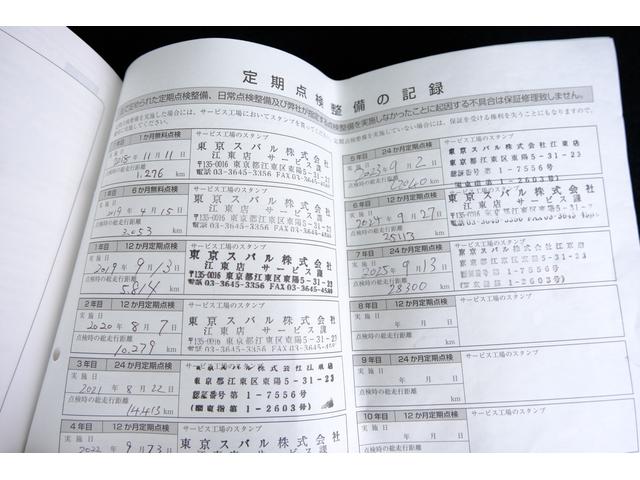 定期点検整備の記録
1年目 1か月無料点検 サービス工場のスタンプ
実施日 2018年11月11日
東京スバル株式会社
江東店 サービス課
〒135-0016 東京都江東区東陽5-31-23
電話03-3645-3356 FAX03-3645-
点検時の総走行距離 1,276 km
1年目 6か月無料点検 サービス工場のスタンプ
実施日 2019年4月15日
東京スバル株式会社
江東店 サービス課
〒135-0016 東京都江東区東陽5-31-23
電話03-3645-3356 FAX03-3645-
点検時の総走行距離 3,053 km
1年目 12か月定期点検 サービス工場のスタンプ
実施日 2019年9月13日
東京スバル株式会社
江東店 サービス課
〒135-0016 東京都江東区東陽5-31-23
電話03-3645-3356 FAX03-3645-
点検時の総走行距離 5,814 km
2年目 12か月定期点検 サービス工場のスタンプ
実施日 2020年8月7日
東京スバル株式会社
江東店 サービス課
〒135-0016 東京都江東区東陽5-31-23
点検時の総走行距離 10,279 km
3年目 24か月定期点検 サービス工場のスタンプ
実施日 2021年8月22日
東京スバル株式会社江東店
東京都江東区東陽5-31-23
認証番号第1-7556号
(関東指第1-2603号)
点検時の総走行距離 14,413 km
4年目 12か月定期点検 サービス工場のスタンプ
実施日
東京スバル株式会社
5年目 24か月定期点検 サービス工場のスタンプ
実施日 2023年9月2日
東京スバル株式会社江東店
東京都江東区東陽5-31-23
認証番号第1-7556号
点検時の総走行距離 km
6年目 12か月定期点検 サービス工場のスタンプ
実施日 2024年9月27日
東京スバル株式会社
江東店 サービス課
〒135-0016 東京都江東区東陽5-31-23
点検時の総走行距離 25113 km
7年目 24か月定期点検 サービス工場のスタンプ
実施日 2025年9月13日
東京スバル株式会社江東店
東京都江東区東陽5-31-23
認証番号第1-7556号
(関東指第1-2603号)
点検時の総走行距離 28300 km
8年目 12か月定期点検 サービス工場のスタンプ
実施日 年 月 日
点検時の総走行距離 km
9年目 24か月定期点検 サービス工場のスタンプ
実施日 年 月 日
点検時の総走行距離 km
10年目 12か月定期点検 サービス工場のスタンプ
実施日 年 月 日
点検時の総走行距離